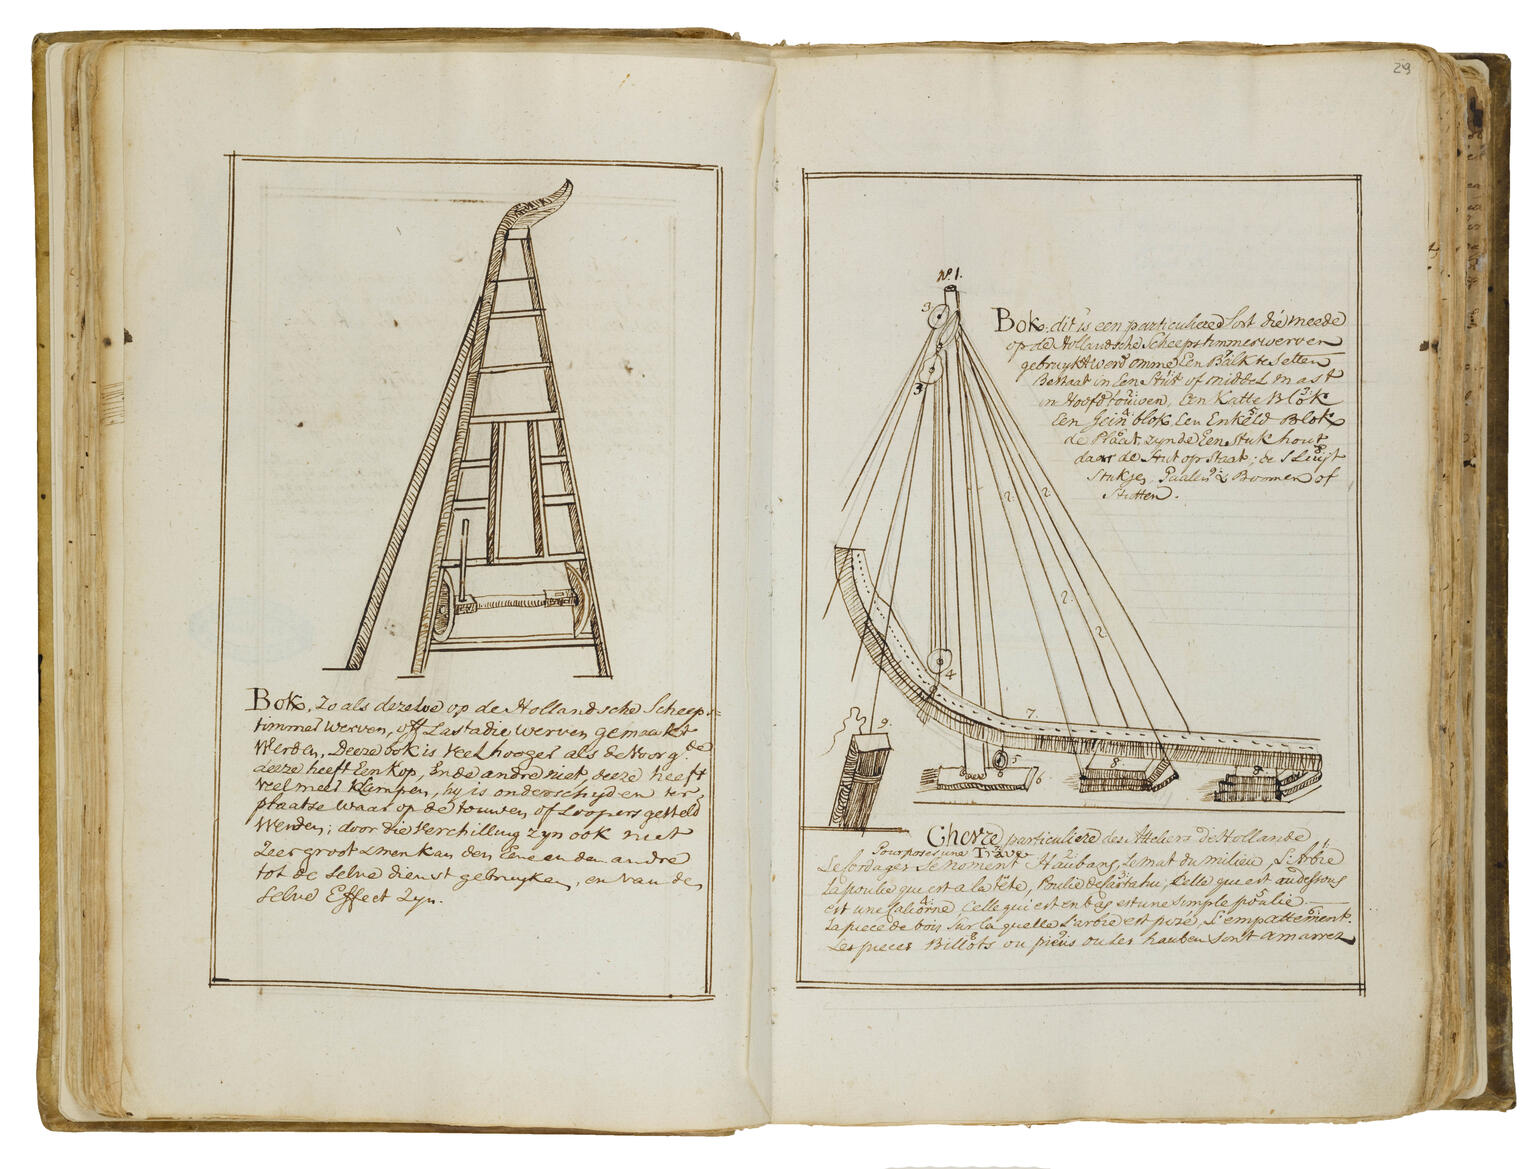 Bok, Zo als dezelve op de Hollandsche Scheeps=
timmer werven, off Lastadie werven gemaakt
Werden, Deeze bok is veel hooger als de Voorg.de
deeze heeft Een kop, En de andre niet deeze heeft
veel meer Klampen, hy is onderschyden ter
plaatse waar op de touwen of Loopers gesteld
Werden; door die Verchilling Zyn ook niet
Zeer groot Men kan den Eene en den andre
tot de selve dienst gebruyken, en van de
selve Effect Zyn.
29
No. 1.
3
3
2
2
2
2
4
7.
9.
5
6
8.
8
Bok, dit is een particuliere Sort die meede
op de Hollandsche Scheepstimmerwerven
gebruykt werd omme Een Balk te setten
Bestaat in Een Stut of middel mast
in Hoofdtouwen, Een Katte Blok
Een Gein blok, Een Enkeld Blok
de Plaat, zynde Een stuk hout
daar de Stut op staat; de Sluijt
Stukjes, Paalen & Boomen of
Stutten.
Chevre particuliere des Atteliers de Hollande
Pour poser une Trave
Le Cordages se noment Haubans, Le mat du milieu, L'Arbre
La poulie que est a la tête, Poulie de Cartahu; Celle que est au dessous
est une Caliorne, Celle qui est en bas est une simple poulie
La piece de bois sur la quelle L'arbre est pozé, L'empattement.
Les pieces Billots ou pieus ou les hauben sont amarrez